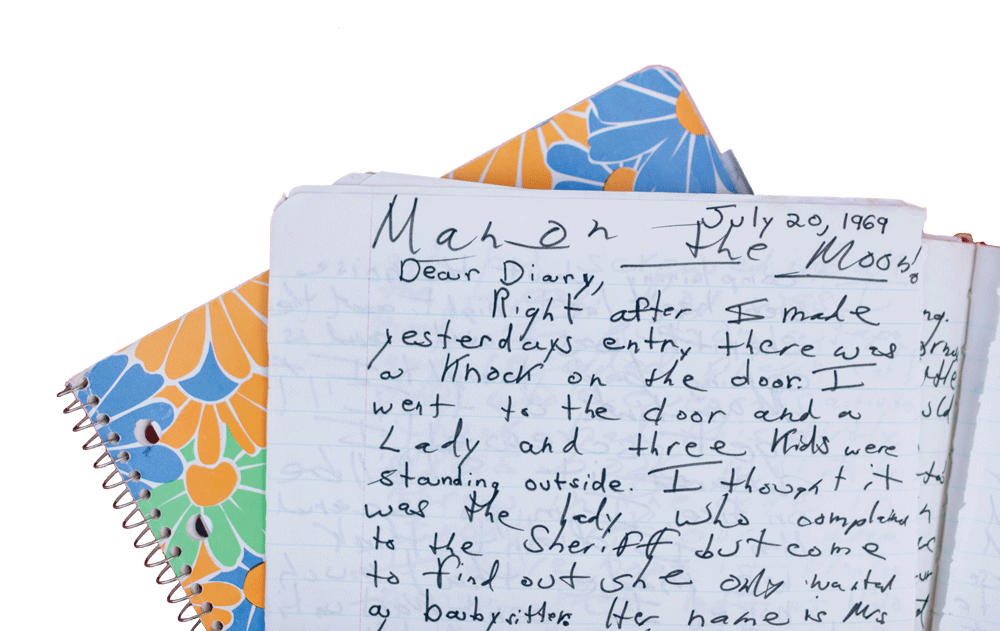 July 20, 1969
Man on the Moon!
Dear Diary,
Right after I made
yesterdays entry there was
a Knock on the door. I
went to the door and a
Lady and three Kids were
standing outside. I thought it
was the lady who complained
to the Sheriff but come
to find out she only wanted
a babysitter. Her name is Mrs
ng.